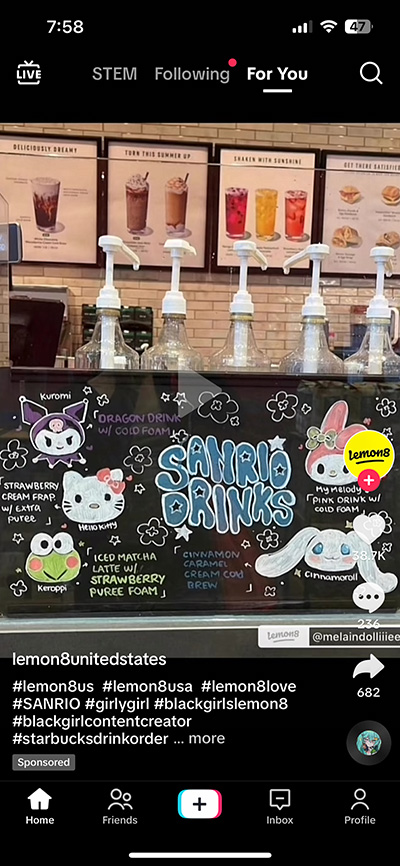 7:58
47
LIVE
STEM
Following
For You
DELICIOUSLY DREAMY
TURN THIS SUMMER UP
SHAKEN WITH SUNSHINE
GET THERE SATISFIED
Kuromi
DRAGON DRINK
W/ COLD FOAM
SANRIO
DRINKS
STRAWBERRY
CREAM FRAP
W/ EXTRA
PUREE
Hello Kitty
My Melody
PINK DRINK W/
COLD FOAM
Keroppi
ICED MATCHA
LATTE W/
STRAWBERRY
PUREE FOAM
CINNAMON
CARAMEL
CREAM COLD
BREW
Cinnamoroll
lemon8
38.7K
236
682
lemon8
@melaindolliiieee
lemon8unitedstates
#lemon8us #lemon8usa #lemon8love
#SANRIO #girlygirl #blackgirlslemon8
#blackgirlcontentcreator
#starbucksdrinkorder ... more
Sponsored
Home
Friends
Inbox
Profile